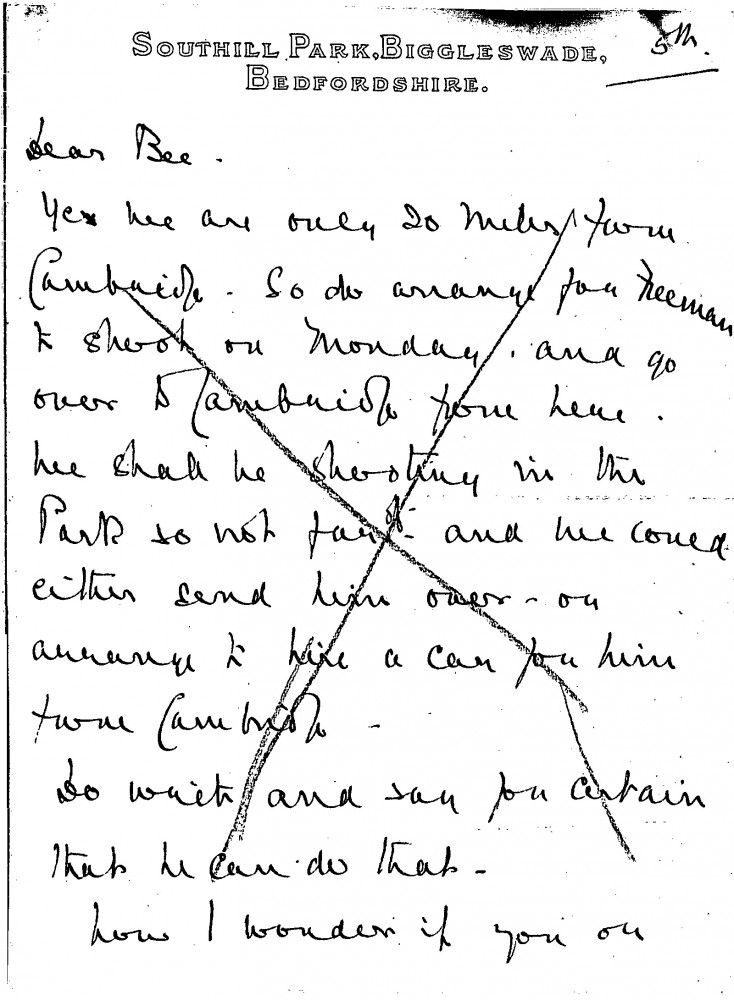 SOUTHILL PARK, BIGGLESWADE,
BEDFORDSHIRE.
5th.
Dear Bee.
Yes we are only 20 miles from
Cambridge. So do arrange for Freeman
to shoot on Monday. and go
over to Cambridge from here.
We shall be shooting in the
Park so not far off - and we could
either send him over - or
arrange to hire a car for him
from Cambridge -
Do write and say for certain
that he can do that -
Now I wonder if you or